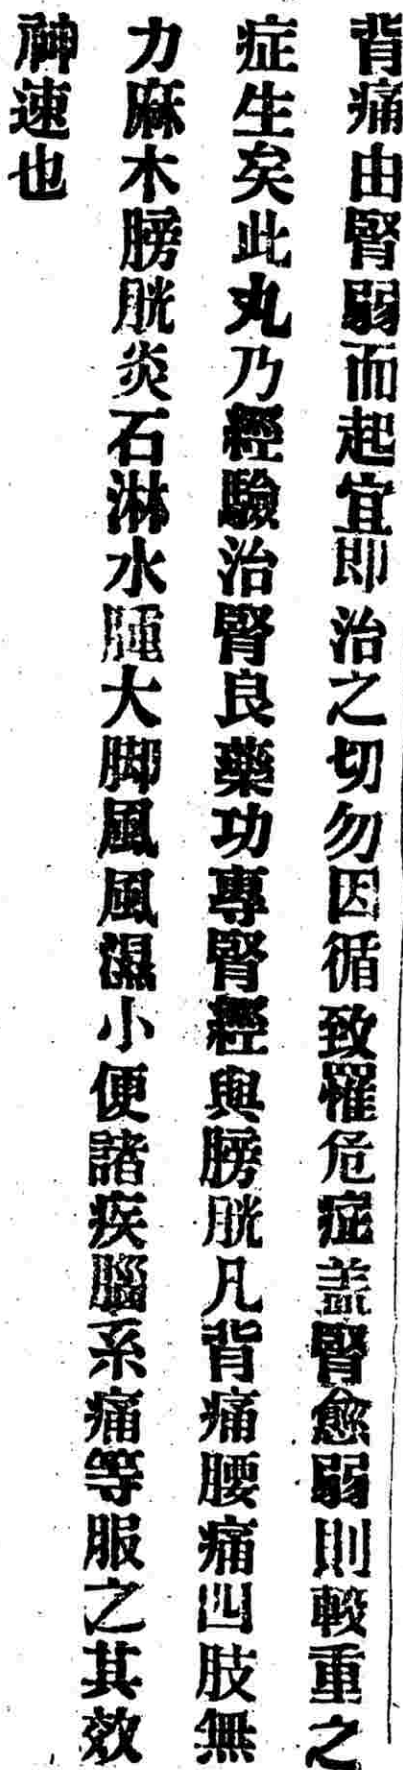 背痛由腎弱而起宜即治之切勿因循致罹危症盖腎愈弱則較重之
症生矣此丸乃經驗治腎良藥功專腎經與膀胱凡背痛腰痛四肢無
力麻木膀胱炎石淋水腫大脚風風濕小便諸疾腦系痛等服之其效
神速也